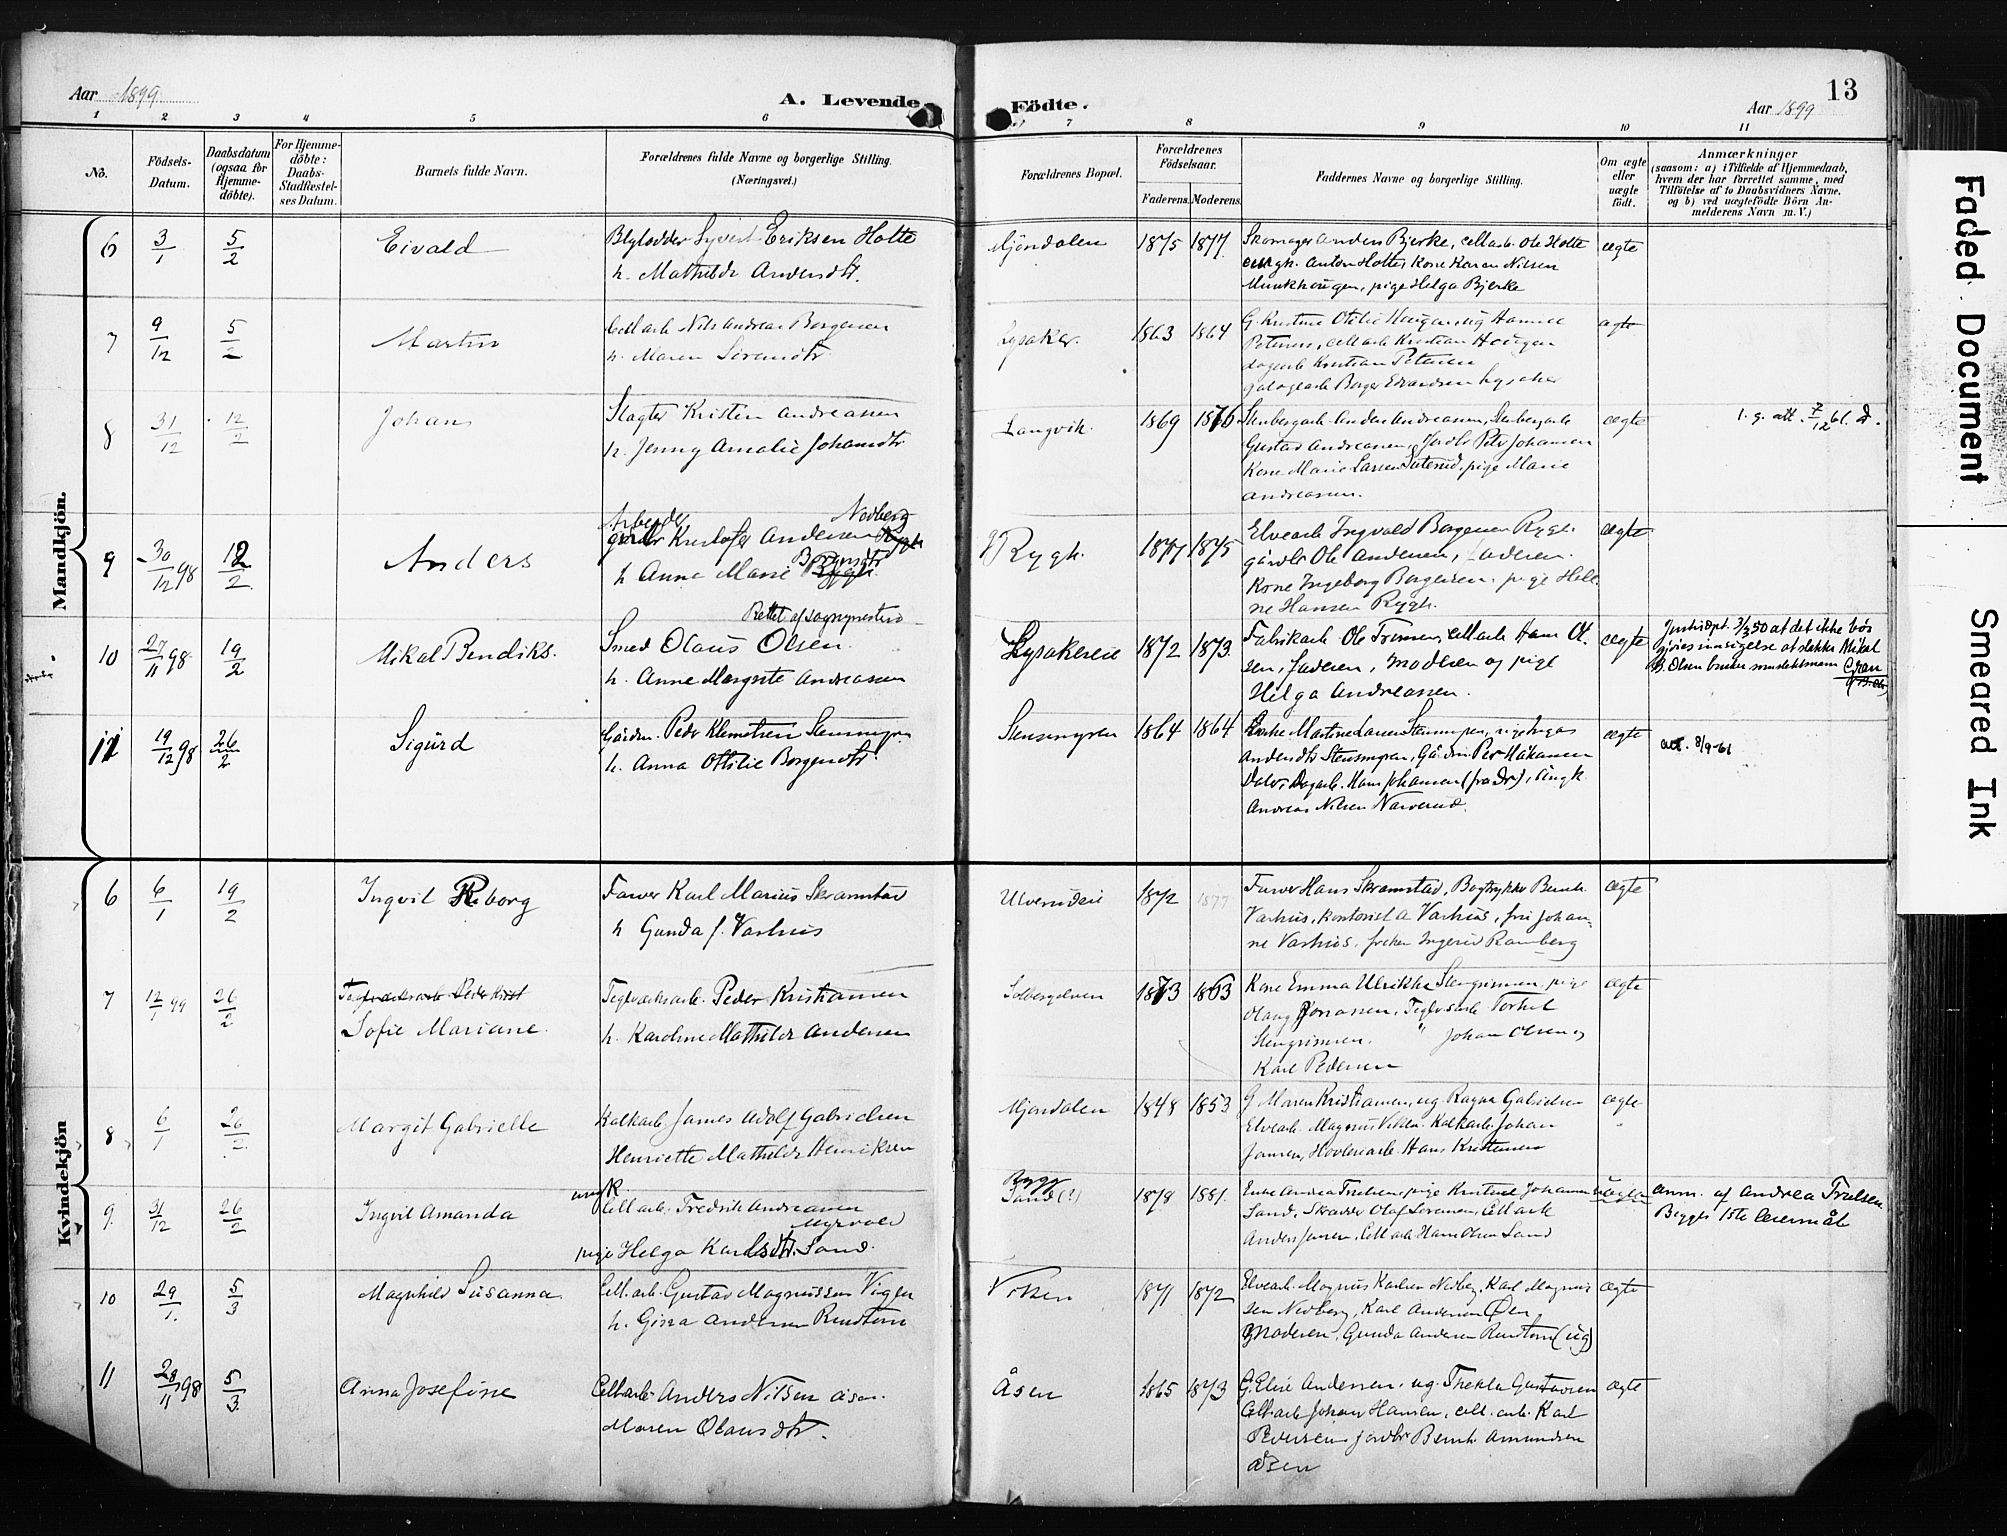 Aar 1899.
A. Levende
Födte.
Aar 1899
13
1 2 3 4 5 6 7 8 9 10 11
No.
Födsels-
Datum.
Daabsdatum
(ogsaa for
Hjemme-
döbte).
For Hjemme-
döbte:
Daabs-
Stadfæstel-
ses Datum.
Barnets fulde Navn.
Forældrenes fulde Navne og borgerlige Stilling.
(Næringsvei.)
Forældrenes Bopæl.
Forældrenes
Födselsaar.
Faderens. Moderens.
Faddernes Navne og borgerlige Stilling.
Om ægte
eller
uægte
födt.
Anmærkninger
(saasom: a) i Tilfælde af Hjemmedaab,
hvem der har forrettet samme, med
Tilföielse af to Daabsvidners Navne,
og b) ved uægtefödte Börn An-
melderens Navn m. V.)
Mandkjön.
6 3/1 5/2 Eivald
Syvert Eriksen Hotte
h. Mathilde Andersdtr.
Mjöndalen 1875 1877
Skomager Anders Bjerke, cellarb. Ole Hotte
ungk. Anton Hotte, kone Karen Nilsen
Munkhaugen, pige Helga Bjerke
ægte
7 9/12 5/2 Martin
Cellarb. Nils Andreas Borgersen
h. Maren Sörensdtr.
Lysaker. 1863 1864
G. Kristine Otilie Haugen, ug. Hanna
Petersen, cellarb. Kristian Haugen
dagarb. Kristian Petersen
Borger Edvardsen Lysaker
ægte
8 31/12 12/2 Johan
Slagter Kristen Andreassen
h. Jenny Amalie Johansdtr
Langvik. 1869 1876
Stenbergarb. Anders Andreassen, Stenbergarb
Gustav Andreassen, Jordbr. Peter Johansen
Kone Marie Larsen Seterud, pige Marie
Andreassen.
ægte
1. g. att. 7/12 61. D.
9 30/12 98 12/2 Anders
Arbeider Nedberg
gårdbr Kristofer Andersen Rygh
h Anna Marie Rygh Börresdtr
Rygh. 1877 1875
Elvearb Ingvald Borgersen Rygh.
gårdbr Ole Andersen, Faderen.
Kone Ingeborg Borgersen, pige Hel-
ne Hansen Rygh.
ægte
Rettet af sogneprest
10 27/11 98. 19/2 Mikal Bendiks.
Smed Olaus Olsen.
h. Anne Margrete Andreassen
Lysakereie 1872 1873.
Fabrikarb Ole Tronsen, cellarb Hans Ol-
sen, faderen, moderen og pige
Helga Andreassen.
ægte
Justisdpt. 3/3 50 at det ikke bös
gjöres insigelse at slekten Mikal
B. Olsen bruker som slektsnavn Gran
11 19/12 98 26/2 Sigurd
Gårdm. Peder Klemetsen Stensmyren.
h. Anna Otilie Borgersdtr.
Stensmyren 1864 1864
Enke Martine Larsen Stensmyren, pige Inga
Andersdtr Stensmyren, Gårdm Per Håkansen
Daler, Dagarb. Hans Johansen (fra Dr), Ungk.
Andreas Nilsen Narverud.
ægte
att. 8/9-61
Kvindekjön
6 6/1 19/2 Ingvil Reborg
Farver Karl Marius Skramstad
h Gunda f. Varhus
Ulverudeie 1872 1877
Farver Hans Skramstad, Bogtrykker Bernh.
Varhus, kontorist A Varhus, frü Johan-
ne Varhus, fröken Ingerid Ramberg
ægte
7 12/1 99 26/2 Teglværksarb. Peder Krist
Sofie Mariane.
Teglværksarb. Peder Kristiansen
h. Karoline Mathilde Andersen
Solbergelven 1873 1863
Kone Emma Ulrikke Stengrimsen, pige
Olaug Jonassen, Teglv.arb. Torkel
Stengrimsen. " Johan Olsen og
Karl Pedersen
ægte
8 6/1 26/2 Margit Gabrielle
Kalkarb. James Adolf Gabrielsen
Henriette Mathilde Henriksen
Mjöndalen 1848 1853
G. Maren Kristiansen, ug. Ragna Gabrielsen
Elvearb. Magnus Vilden. Kalkarb. Johan
Jansen, Hövleriarb. Hans Kristensen
ægte
9. 31/12 26/2 Ingvil Amanda
ungk
Cellarb. Fredrik Andreassen
Myrvold
pige Helga Karlsdtr. Sand.
Begge
Sand (?) 1878 1881.
Enke Andrea Truelsen, pige Kristine Johansen
Sand, Skrædder Olaf Sörensen, Cellarb
Anders Jansen, Cellarb Hans Olsen Sand
uægte
Anm. af Andrea Truelsen
Begges 1ste leiermål
10 29/1. 5/3 Magnhild Susanna
Cell.arb. Gustav Magnussen Viger
h. Gina Andersen Rustom
Viken 1871 1872
Elvearb. Magnus Karlsen Nedberg, Karl Magnus-
sen Nedberg, Karl Andersen Öen,
Moderen, Gunda Andersen Rustom (ug)
ægte
11 28/11 98 5/3 Anna Josefine
Cellarb. Anders Nilsen Åsen.
Maren Olausdtr.
Åsen 1865 1873
G. Elise Andersen, ug. Thekla Gustavsen
Cellarb Johan Hansen, cell.arb. Karl
Pedersen, jordbr. Bernh. Amundsen
Åsen
ægte
Faded Document
Smeared Ink